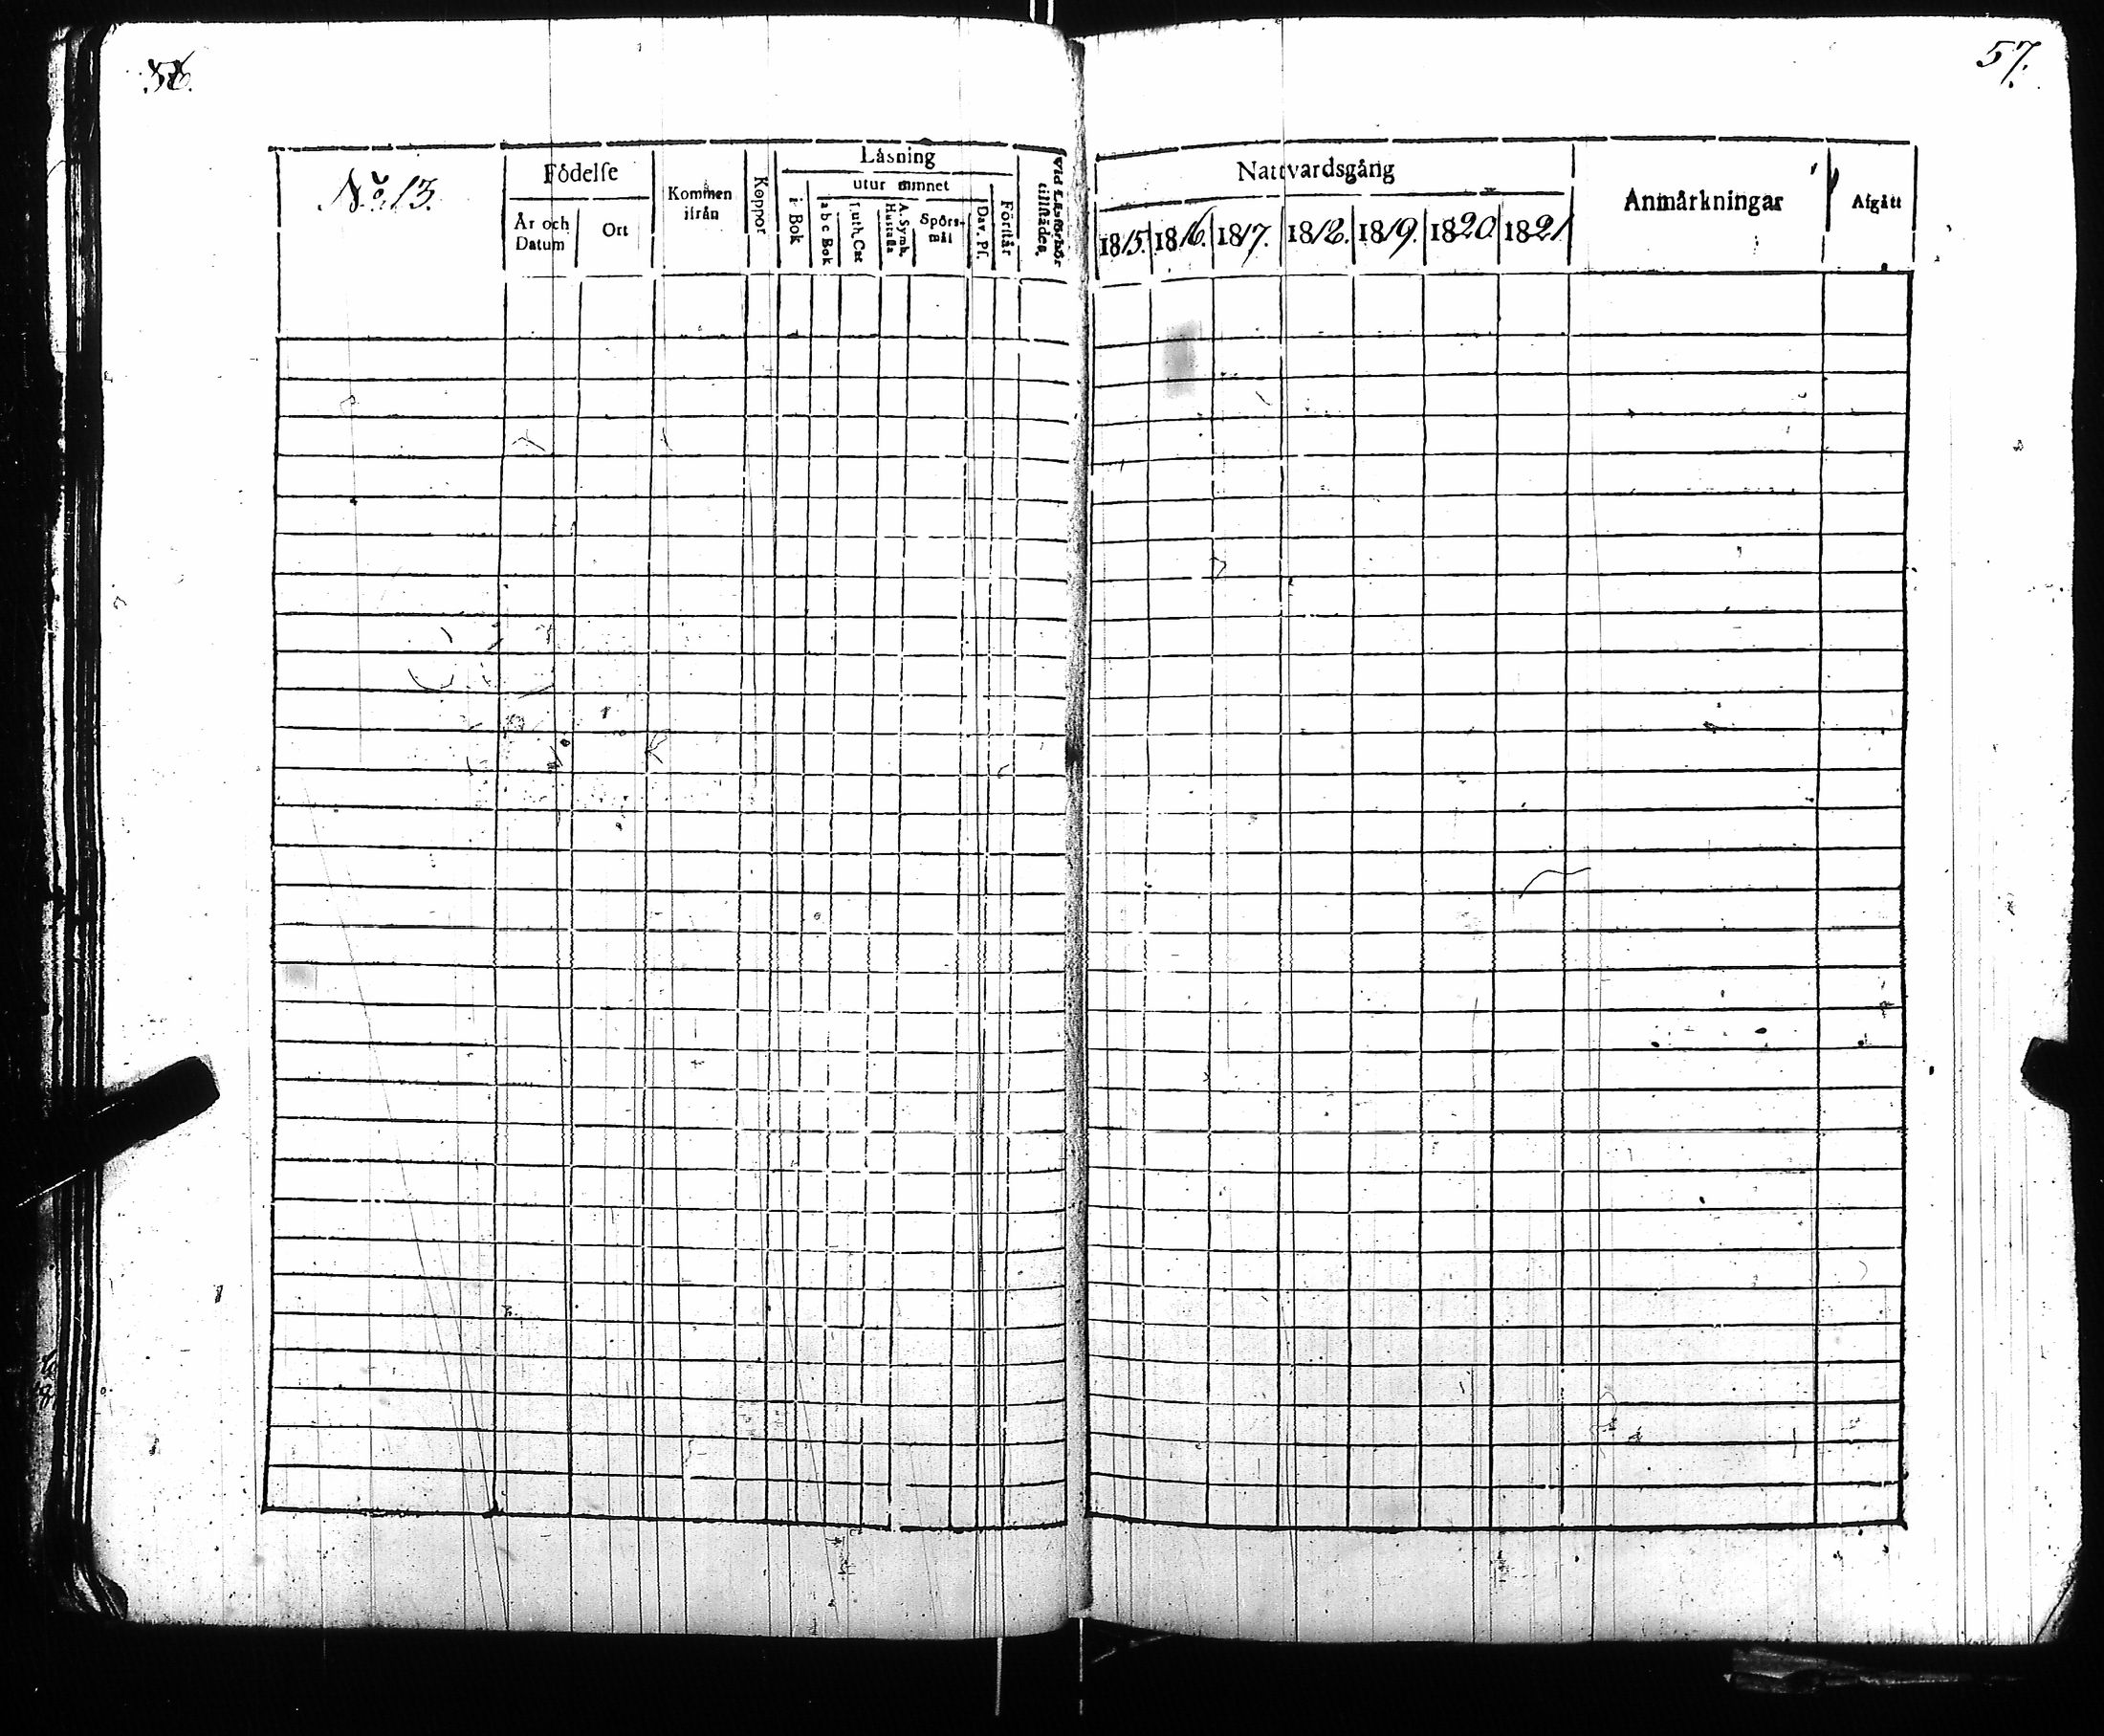 56.
No. 13.
Födelse
År och Datum
Ort
Kommen ifrån
Koppor
Läsning
i Bok
utur minnet
a b c Bok
Luth. Cat
A. Symb. Hustafla
Spörsmål
Dav. Pf.
Förstår
Vid Läsförhör tillstädes.
57.
Nattvardsgång
1815.
1816.
1817.
1818.
1819.
1820
1821
Anmärkningar
Afgått